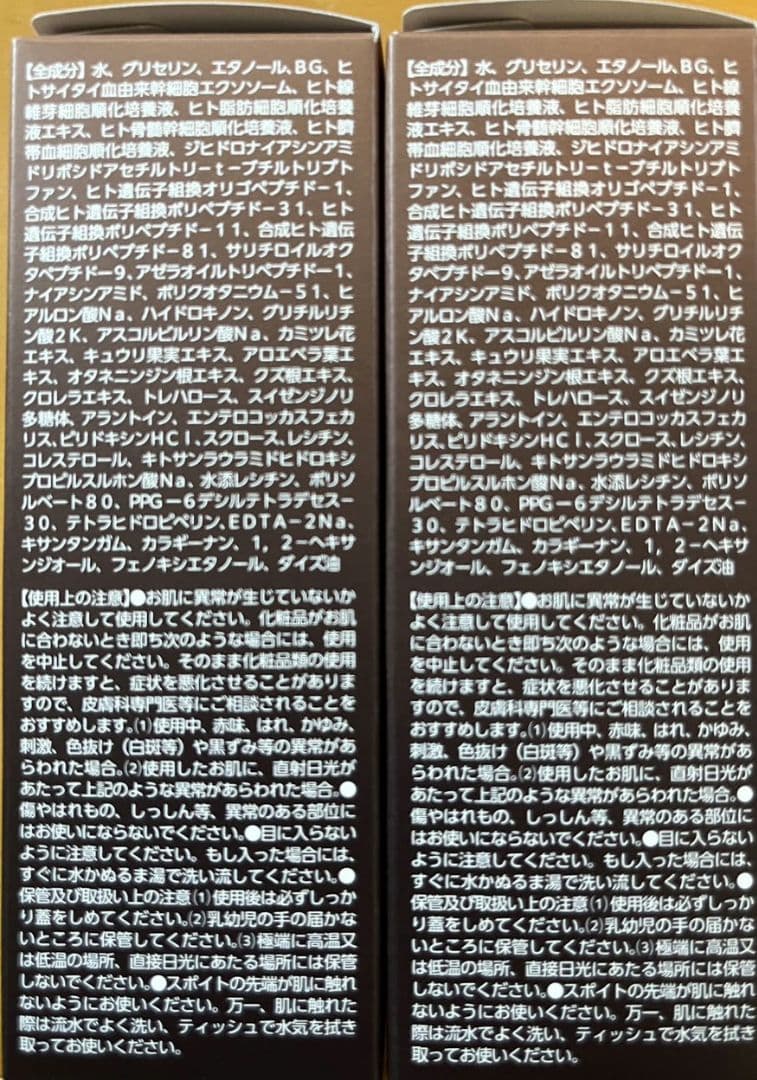 【全成分】水、グリセリン、エタノール、BG、ヒ
トサイタイ血由来幹細胞エクソソーム、ヒト線
維芽細胞順化培養液、ヒト脂肪細胞順化培養
液エキス、ヒト骨髄幹細胞順化培養液、ヒト臍
帯血細胞順化培養液、ジヒドロナイアシンアミ
ドリポシドアセチルトリーt－ブチルトリプト
ファン、ヒト遺伝子組換オリゴペプチド－1、
合成ヒト遺伝子組換ポリペプチド－31、ヒト
遺伝子組換ポリペプチド－11、合成ヒト遺伝
子組換ポリペプチド－81、サリチロイルオク
タペプチド－9、アゼラオイルトリペプチド－1、
ナイアシンアミド、ポリクオタニウム－51、ヒ
アルロン酸Na、ハイドロキノン、グリチルリチ
ン酸2K、アスコルビルリン酸Na、カミツレ花
エキス、キュウリ果実エキス、アロエベラ葉エ
キス、オタネニンジン根エキス、クズ根エキス、
クロレラエキス、トレハロース、スイゼンジノリ
多糖体、アラントイン、エンテロコッカスフェカ
リス、ピリドキシンHCl、スクロース、レシチン、
コレステロール、キトサンラウラミドヒドロキシ
プロピルスルホン酸Na、水添レシチン、ポリソ
ルベート80、PPG－6デシルテトラデセス－
30、テトラヒドロピペリン、EDTA－2Na、
キサンタンガム、カラギーナン、1，2－ヘキサ
ンジオール、フェノキシエタノール、ダイズ油
【使用上の注意】●お肌に異常が生じていないか
よく注意して使用してください。化粧品がお肌
に合わないとき即ち次のような場合には、使用
を中止してください。そのまま化粧品類の使用
を続けますと、症状を悪化させることがありま
すので、皮膚科専門医等にご相談されることを
おすすめします。(1)使用中、赤味、はれ、かゆみ、
刺激、色抜け（白斑等）や黒ずみ等の異常があ
らわれた場合。(2)使用したお肌に、直射日光が
あたって上記のような異常があらわれた場合。●
傷やはれもの、しっしん等、異常のある部位に
はお使いにならないでください。●目に入らない
ように注意してください。もし入った場合には、
すぐに水かぬるま湯で洗い流してください。●
保管及び取扱い上の注意(1)使用後は必ずしっか
り蓋をしめてください。(2)乳幼児の手の届かな
いところに保管してください。(3)極端に高温又
は低温の場所、直接日光にあたる場所には保管
しないでください。●スポイトの先端が肌に触れ
ないようにお使いください。万一、肌に触れた
際は流水でよく洗い、ティッシュで水気を拭き
取ってお使いください。
【全成分】水、グリセリン、エタノール、BG、ヒ
トサイタイ血由来幹細胞エクソソーム、ヒト線
維芽細胞順化培養液、ヒト脂肪細胞順化培養
液エキス、ヒト骨髄幹細胞順化培養液、ヒト臍
帯血細胞順化培養液、ジヒドロナイアシンアミ
ドリポシドアセチルトリーt－ブチルトリプト
ファン、ヒト遺伝子組換オリゴペプチド－1、
合成ヒト遺伝子組換ポリペプチド－31、ヒト
遺伝子組換ポリペプチド－11、合成ヒト遺伝
子組換ポリペプチド－81、サリチロイルオク
タペプチド－9、アゼラオイルトリペプチド－1、
ナイアシンアミド、ポリクオタニウム－51、ヒ
アルロン酸Na、ハイドロキノン、グリチルリチ
ン酸2K、アスコルビルリン酸Na、カミツレ花
エキス、キュウリ果実エキス、アロエベラ葉エ
キス、オタネニンジン根エキス、クズ根エキス、
クロレラエキス、トレハロース、スイゼンジノリ
多糖体、アラントイン、エンテロコッカスフェカ
リス、ピリドキシンHCl、スクロース、レシチン、
コレステロール、キトサンラウラミドヒドロキシ
プロピルスルホン酸Na、水添レシチン、ポリソ
ルベート80、PPG－6デシルテトラデセス－
30、テトラヒドロピペリン、EDTA－2Na、
キサンタンガム、カラギーナン、1，2－ヘキサ
ンジオール、フェノキシエタノール、ダイズ油
【使用上の注意】●お肌に異常が生じていないか
よく注意して使用してください。化粧品がお肌
に合わないとき即ち次のような場合には、使用
を中止してください。そのまま化粧品類の使用
を続けますと、症状を悪化させることがありま
すので、皮膚科専門医等にご相談されることを
おすすめします。(1)使用中、赤味、はれ、かゆみ、
刺激、色抜け（白斑等）や黒ずみ等の異常があ
らわれた場合。(2)使用したお肌に、直射日光が
あたって上記のような異常があらわれた場合。●
傷やはれもの、しっしん等、異常のある部位に
はお使いにならないでください。●目に入らない
ように注意してください。もし入った場合には、
すぐに水かぬるま湯で洗い流してください。●
保管及び取扱い上の注意(1)使用後は必ずしっか
り蓋をしめてください。(2)乳幼児の手の届かな
いところに保管してください。(3)極端に高温又
は低温の場所、直接日光にあたる場所には保管
しないでください。●スポイトの先端が肌に触れ
ないようにお使いください。万一、肌に触れた
際は流水でよく洗い、ティッシュで水気を拭き
取ってお使いください。